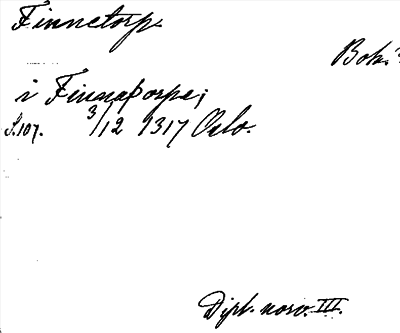 Finnetorp
Boh.
i Finnaþorpe;
S.107. 3/12 1317 Oslo.
Dipl. norv. III.